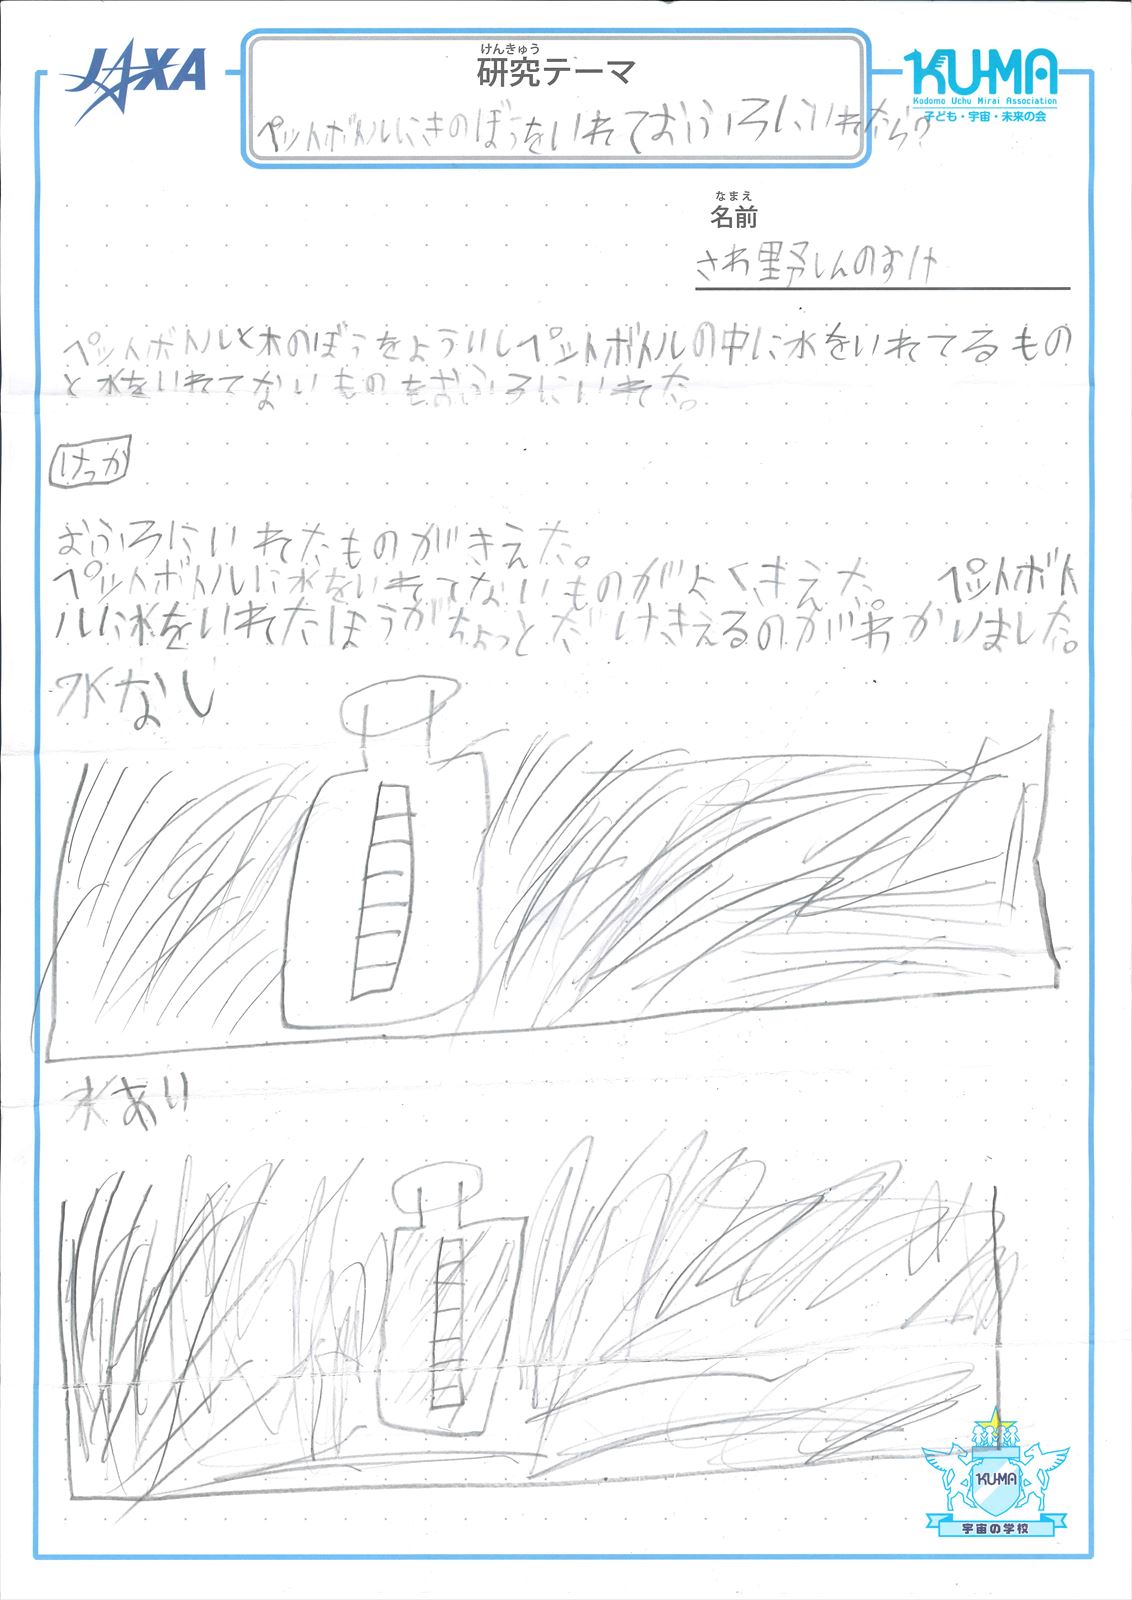 JAXA
けんきゅう
研究テーマ
KU-MA
Kodomo Uchu Mirai Association
子ども・宇宙・未来の会
ペットボトルにきのぼうをいれておふろにいれたら?
なまえ
名前
さわ野しんのすけ
ペットボトルと木のぼうをよういしペットボトルの中に水をいれてるもの
と水をいれてないものをおふろにいれた。
けっか
おふろにいれたものがきえた。
ペットボトルに水をいれてないものがよくきえた。 ペットボト
ルに水をいれたほうがちょっとだけきえるのがわかりました。
水なし
水あり
KU-MA
宇宙の学校